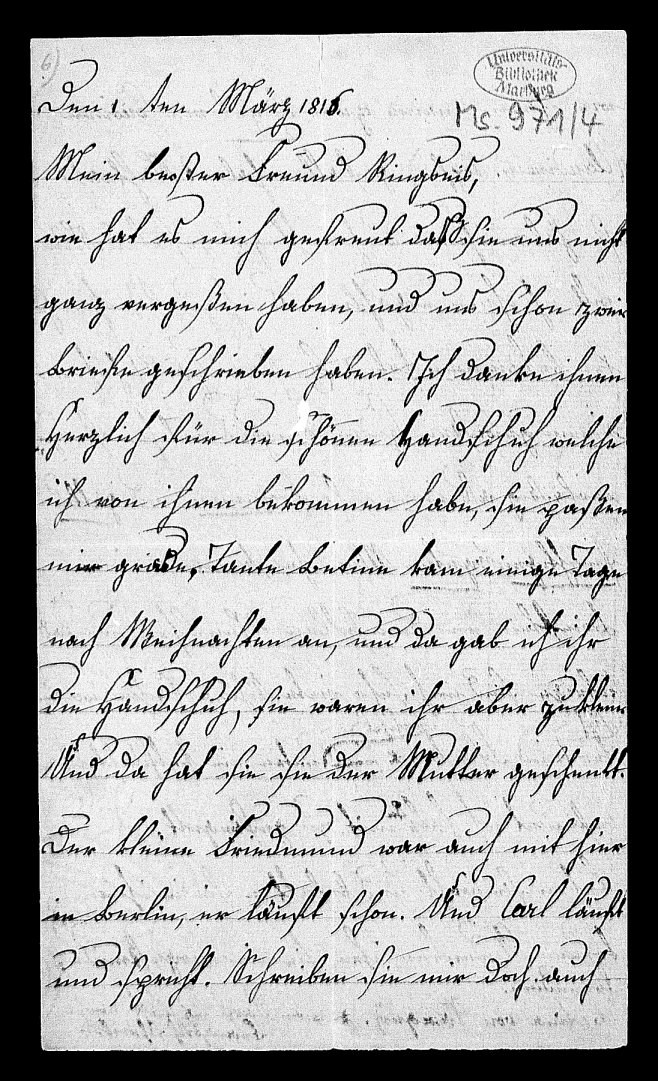 6)
Universitäts-
Bibliothek
Marburg
Den 1 ten März 1816.
Ms. 971/4
Mein bester Freund Ringseis,
wie hat es mich gefreut daß sie uns nicht
ganz vergeßen haben, und uns schon zwei
Briefe geschrieben haben. Ich danke ihnen
Herzlich für die schönen Handschuh welche
ich von ihnen bekommen habe, sie paßen
mir grade, Tante Betine kam einige Tage
nach Weihnachten an, und da gab ich ihr
die Handschuh, sie waren ihr aber zu klein
Und da hat sie sie der Mutter geschenkt.
Der kleine Friedmund war auch mit hier
in Berlin, er läuft schon. Und Carl läuft
und spricht. Schreiben sie mir doch auch